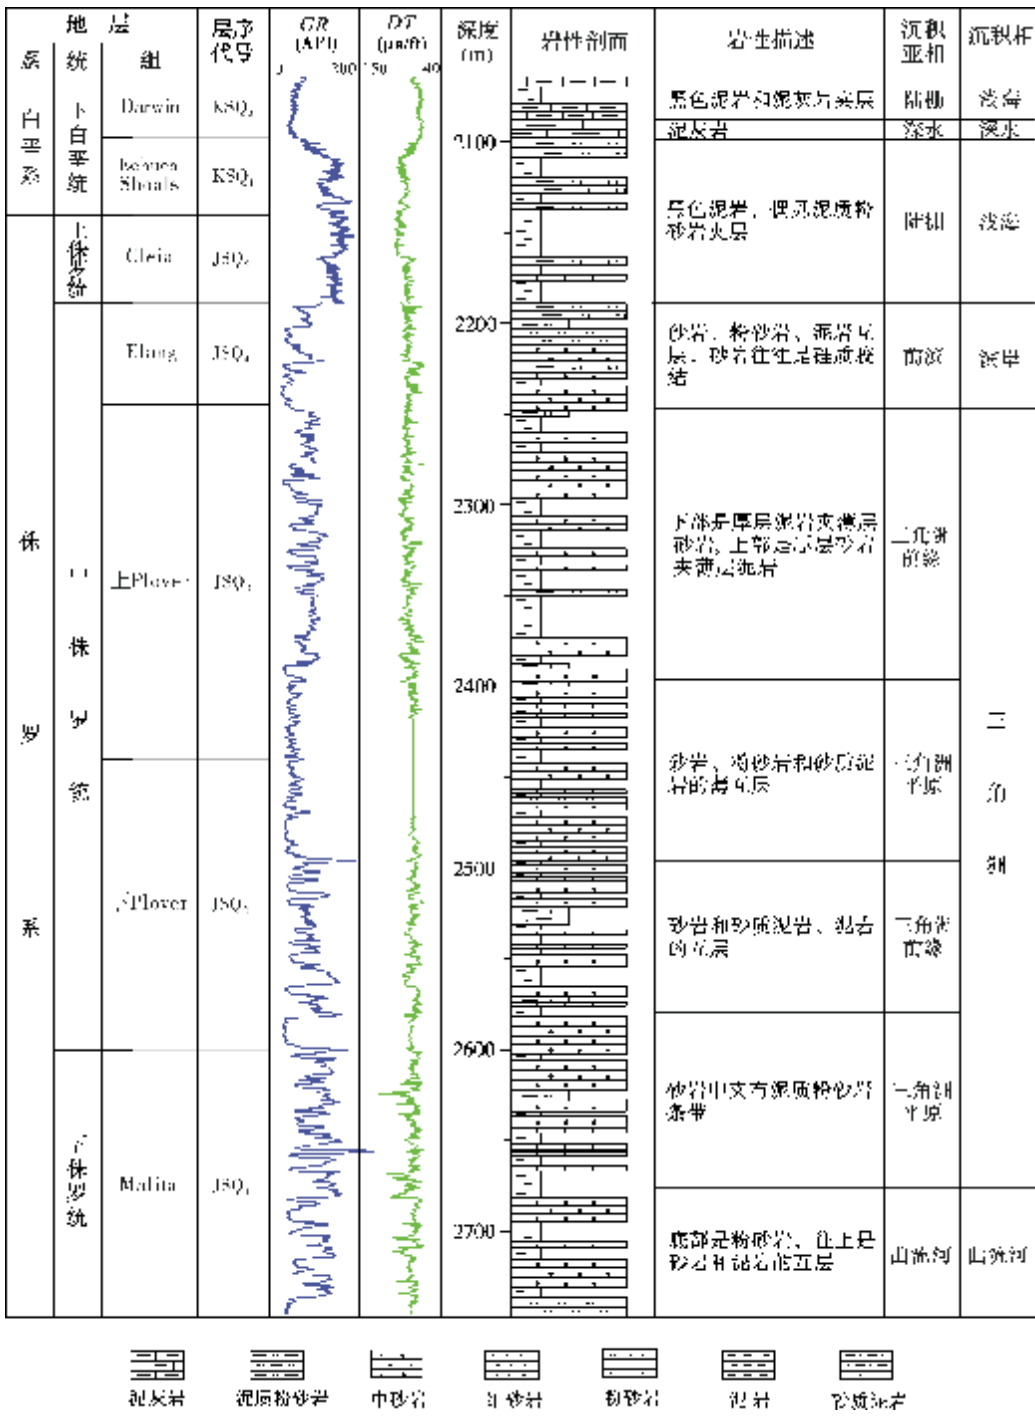 地 层
系 统 组
层序
代号
GR
(API)
0 200
DT
(μs/ft)
150 40
深度
(m)
岩性剖面
岩性描述
沉积
亚相
沉积相
白垩系
下白垩统
Darwin
KSQ₂
黑色泥岩和泥灰岩夹层
陆棚
浅海
泥灰岩
深水
深水
2100
Shoals
KSQ₁
黑色泥岩，偶见泥质粉
砂岩夹层
陆棚
浅海
上侏罗统
Cleia
2200
Elang
JSQ₄
砂岩、粉砂岩、泥岩互
层，砂岩往往是硅质胶
结
前滨
滨岸
侏罗系
中侏罗统
上Plover
JSQ₃
2300
下部是厚层泥岩夹薄层
砂岩，上部是厚层砂岩
夹薄层泥岩
三角洲
前缘
三角洲
2400
砂岩、粉砂岩和砂质泥
岩的薄互层
三角洲
平原
2500
下Plover
JSQ₂
砂岩和砂质泥岩、泥岩
的互层
三角洲
前缘
2600
砂岩中夹有泥质粉砂岩
条带
三角洲
平原
下侏罗统
Malita
JSQ₁
2700
底部是粉砂岩，往上是
砂岩和泥岩的互层
曲流河
曲流河
泥灰岩 泥质粉砂岩 中砂岩 细砂岩 粉砂岩 泥岩 砂质泥岩